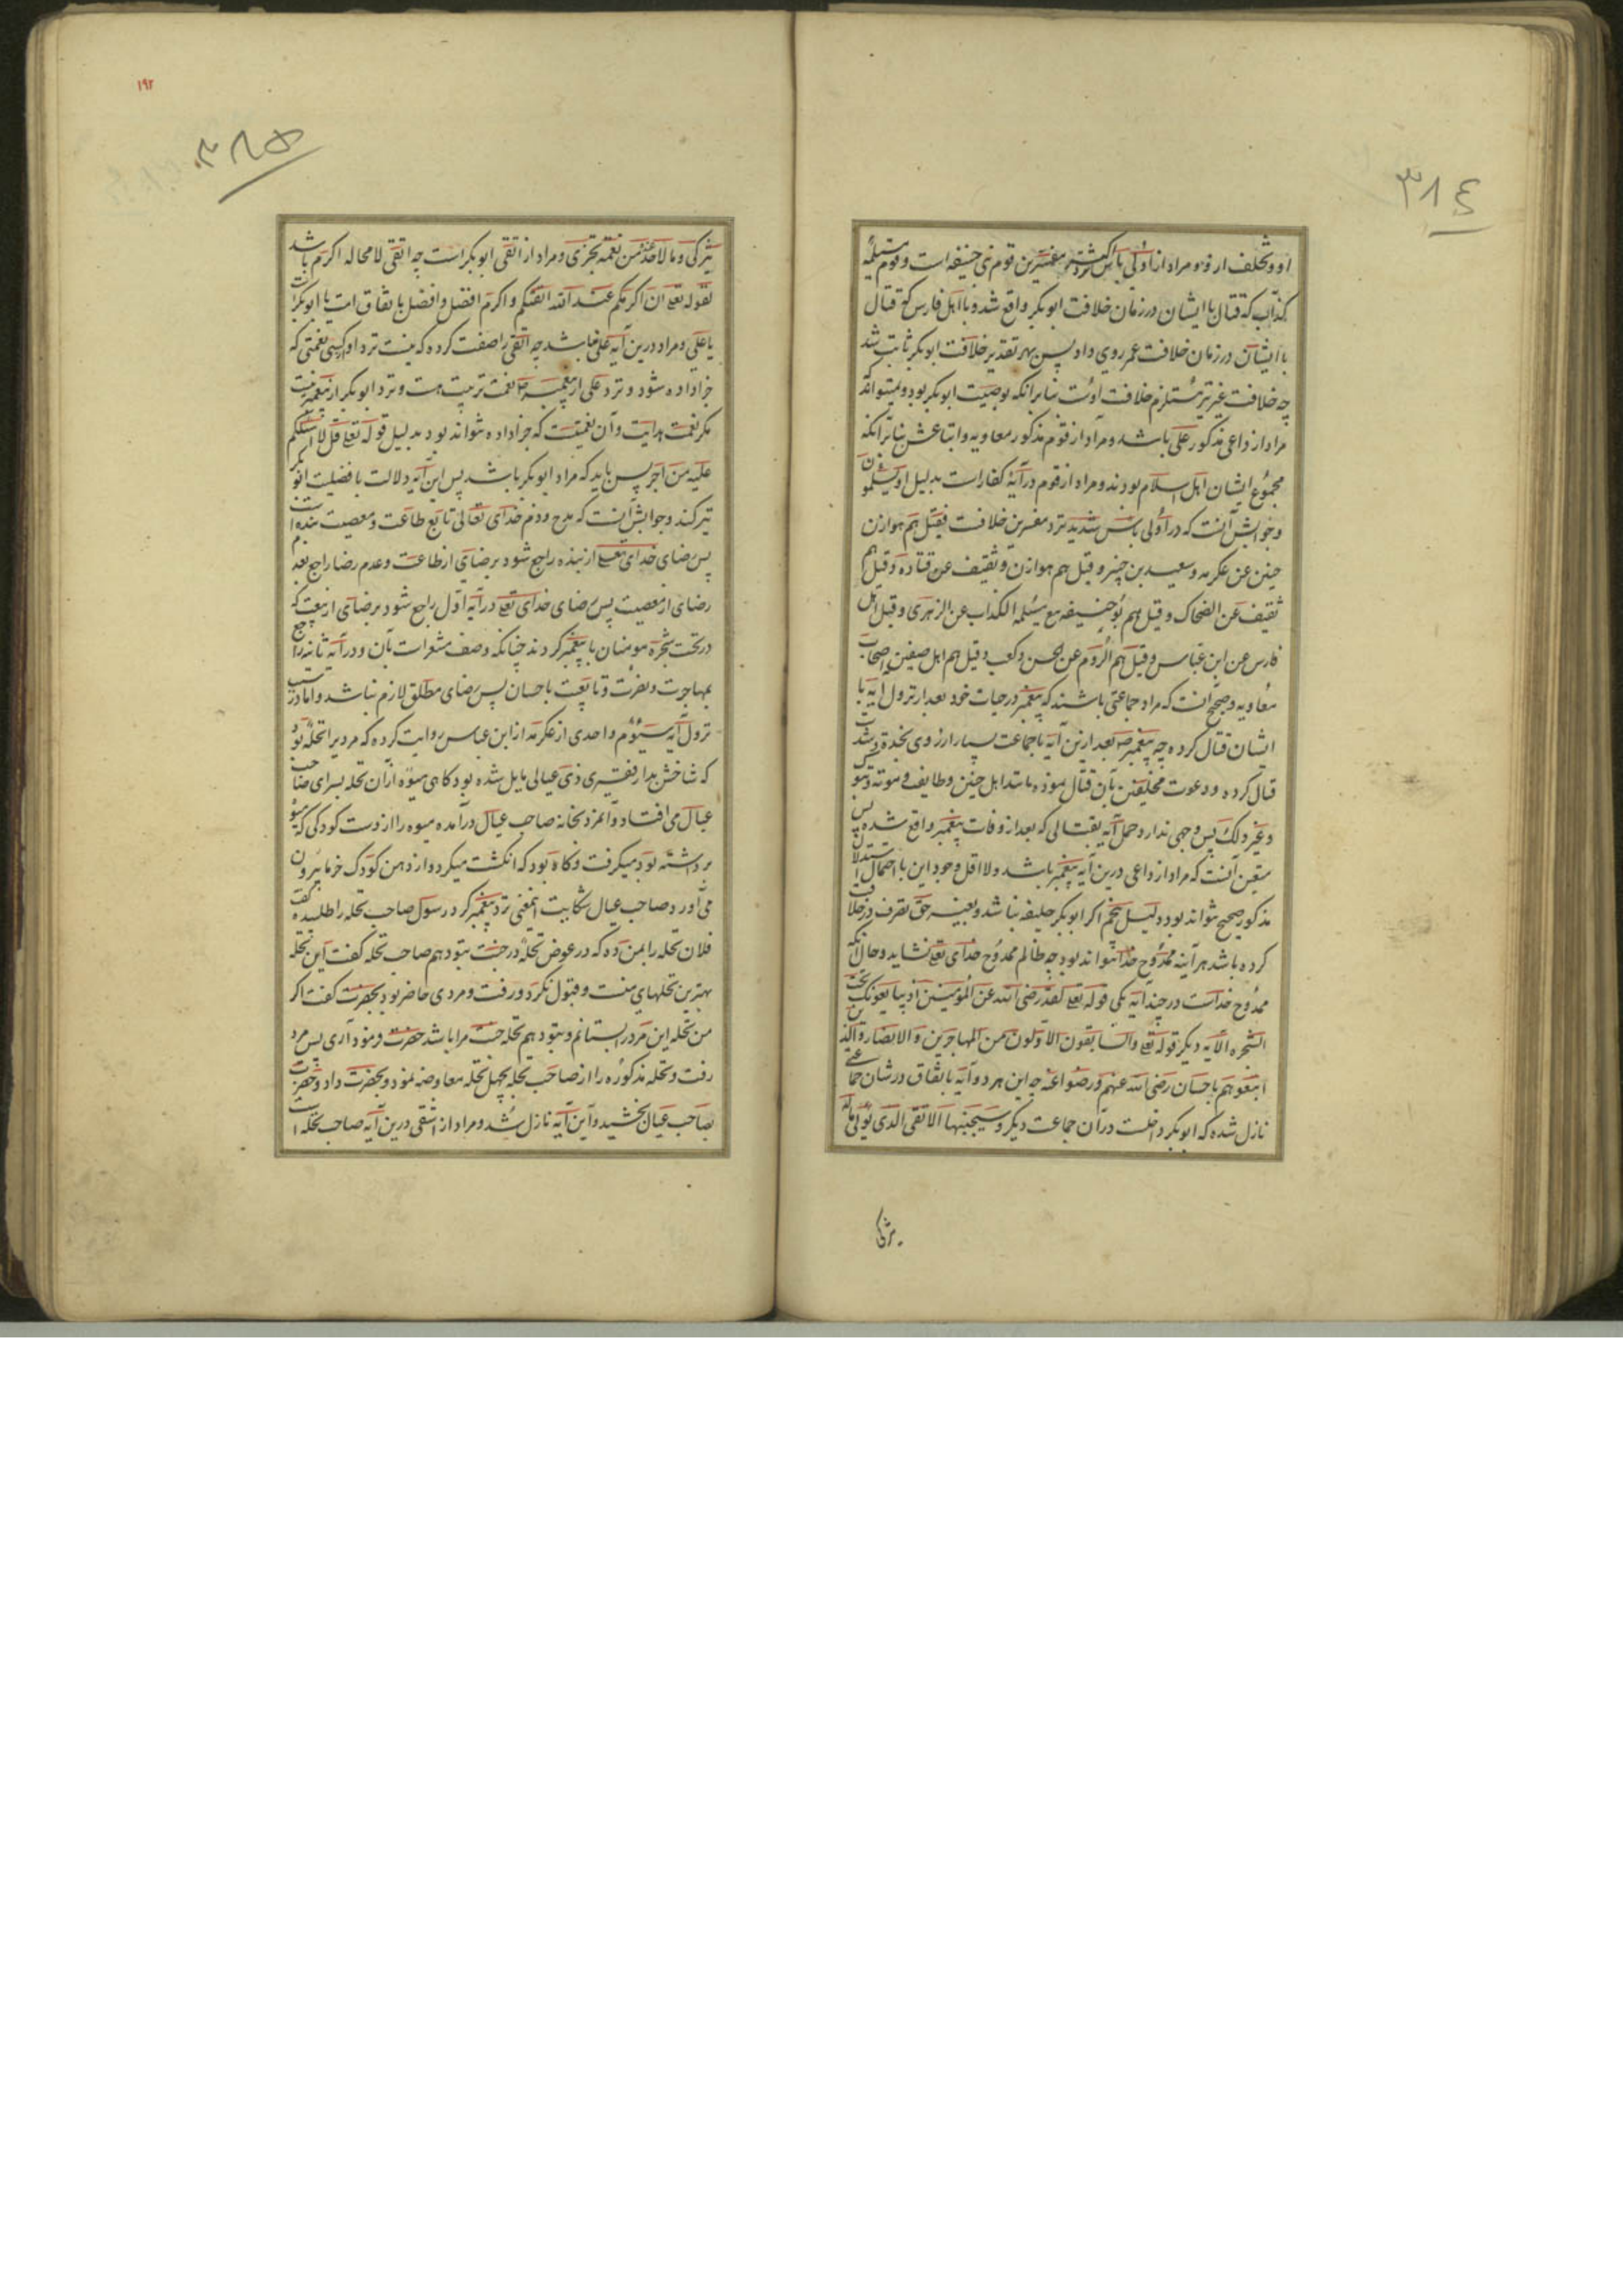 ٣٨٤
او و تخلف ازو و مراد از اولی باس نزد اکثر مفسرین قوم بنی حنیفه است و قوم مسیلمهٔ
کذاب که قتال با ایشان در زمان خلافت ابوبکر واقع شد و یا اهل فارس که قتال
با ایشان در زمان خلافت عمر روی داد پس بهر تقدیر خلافت ابوبکر ثابت شد
چه خلافت عمر نیز مستلزم خلافت اوست بنابرانکه بوصیت ابوبکر بود و نمیتواند که
مراد از داعی مذکور علی باشد و مراد از قوم مذکور معاویه و اتباعش بنابرانکه
مجموع ایشان اهل اسلام بودند و مراد از قوم در آیه کفار است بدلیل او یسلمون
و جوابش آنست که در اولی باس شدید نزد مفسرین خلافست فقیل هم هوازن
حنین عن عکرمه و سعید بن جبیر و قیل هم هوازن و ثقیف عن قتاده و قیل هم
ثقیف عن الضحاک و قیل هم بنو حنیفه مع مسیلمه الکذاب عن الزهری و قیل اهل
فارس عن ابن عباس و قیل هم الروم عن الحسن و کعب و قیل هم اهل صفین اصحاب
معاویه و صحیح آنست که مراد جماعتی باشند که پیغمبر در حیات خود بعد از نزول آیه با
ایشان قتال کرده چه پیغمبر ص بعد ازین آیه با جماعت بسیار از ذوی نجدة و شدت
قتال کرده و دعوت مخلفین بآن قتال نموده مانند اهل حنین و طایف و موته و تبوک
و غیر ذلک پس وجهی ندارد حمل آیه بقتالی که بعد از وفات پیغمبر واقع شده پس
متعین آنست که مراد از داعی درین آیه پیغمبر باشد و لا اقل وجود این با احتمال استدلال
مذکور صحیح نتواند بود دلیل پنجم اگر ابوبکر خلیفه نباشد و بغیر حق تصرف در خلافت
کرده باشد هر آینه ممدوح خدا نتواند بود چه ظالم ممدوح خدای تعالی نشاید و حال آنکه
ممدوح خداست در چند آیه یکی قوله تعالی لقد رضی الله عن المؤمنین اذ یبایعونک تحت
الشجره الآیه دیگر قوله تعالی والسابقون الاولون من المهاجرین و الانصار والذین
اتبعوهم باحسان رضی الله عنهم و رضوا عنه چه این هر دو آیه باتفاق در شان جماعتی
نازل شده که ابوبکر داخلست در آن جماعت دیگر و سیجنبها الاتقی الذی یؤتی ماله
یتزکی
١٩٢
٣٨٥
یتزکی و ما لاحد عنده من نعمة تجزی و مراد از اتقی ابوبکر است چه اتقی لا محاله اکرم باشد
لقوله تعالی ان اکرمکم عند الله اتقیکم و اکرم افضل و افضل باتفاق امت یا ابوبکر است
یا علی و مراد درین آیه علی نباشد چه اتقی را صفت کرده که نیست نزد او کسی نعمتی که
جزا داده شود و نزد علی از پیغمبر ص نعمت تربیت هست و نزد ابوبکر از پیغمبر نیست
مگر نعمت هدایت و آن نعمتیست که جزا داده نتواند بود بدلیل قوله تعالی قل لا اسئلکم
علیه من اجر پس باید که مراد ابوبکر باشد پس این آیه دلالت بافضلیت ابوبکر
نیز کند و جوابش آنست که مدح و ذم خدای تعالی تابع طاعت و معصیت بنده است
پس رضای خدای تعالی از بنده راجع شود برضای از طاعت و عدم رضا راجع بعدم
رضای از معصیت پس رضای خدای تعالی در آیه اول راجع شود برضای از بیعت که
در تحت شجره مومنان با پیغمبر کردند چنانکه وصف مشعر است بآن و در آیه ثانیه راجع
بمهاجرت و نصرت و تابعت باحسان پس رضای مطلق لازم نباشد و اما در سبب
نزول آیه سیوم واحدی از عکرمه از ابن عباس روایت کرده که مردیرا نخله بود
که شاخش بدار فقیری ذی عیالی مایل شده بود گاهی میوه ازان نخله بسرای صاحب
عیال می افتاد و آنمرد بخانه صاحب عیال درآمده میوه را از دست کودکی که میوه
برداشته بود میگرفت و گاه بود که انگشت میکرد و از دهن کودک خرما بیرون
می آورد صاحب عیال شکایت اینمعنی نزد پیغمبر کرد رسول صاحب نخله را طلبیده گفت
فلان نخله را بمن ده که در عوض نخلهٔ در جنت بتو دهم صاحب نخله گفت این نخله
بهترین نخلهای منست و قبول نکرد و رفت و مردی حاضر بود بحضرت گفت اگر
من نخله این مرد را بستانم و بتو دهم نخله جنت مرا باشد حضرت فرمود آری پس مرد
رفت و نخله مذکوره را از صاحب نخله بچهل نخله معاوضه نمود و بحضرت داد و حضرت
بصاحب عیال بخشید و این آیه نازل شد و مراد از اتقی درین آیه صاحب نخله است